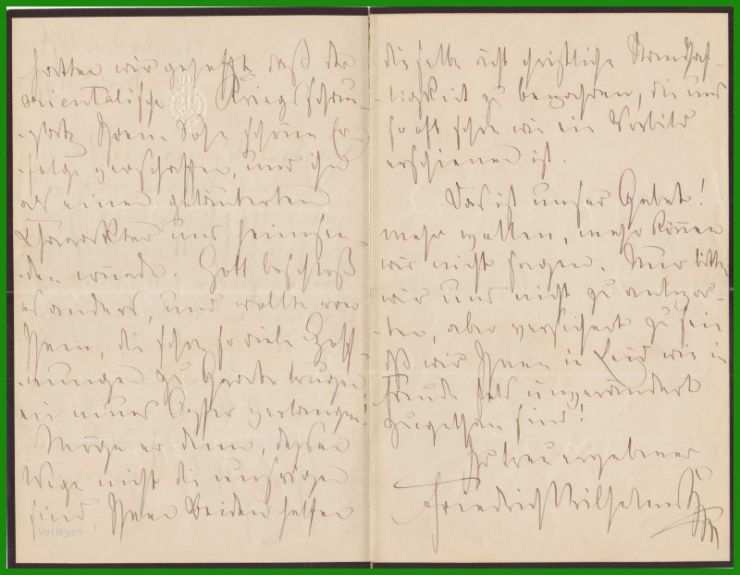 hatten wir gehofft daß der
orientalische Kriegsschau-
-platz Ihrem Sohn schöne Er-
-folge verschaffen, und ihn
als einen geläuterten
Charakter uns heimsen-
-den würde. Gott beschloß
es anders, und wollte von
Ihnen, die schon so viele Hoff-
-nungen zu Grabe trugen
ein neues Opfer verlangen!
Möge er denn, dessen
Wege nicht die unsrigen
sind, Ihnen Beiden helfen
dieselbe ächt christliche Standhaf-
-tigkeit zu bewahren, die uns
so oft schon wie ein Vorbild
erschienen ist.
Das ist unser Gebet!
mehr wollen, mehr können
wir nicht sagen. Nur bitten
wir uns nicht zu antwor-
-ten, aber versichert zu sein
daß wir Ihnen in Leid wie in
Freude stets unverändert
zugethan sind!
Ihr treu ergebener
Friedrich Wilhelm